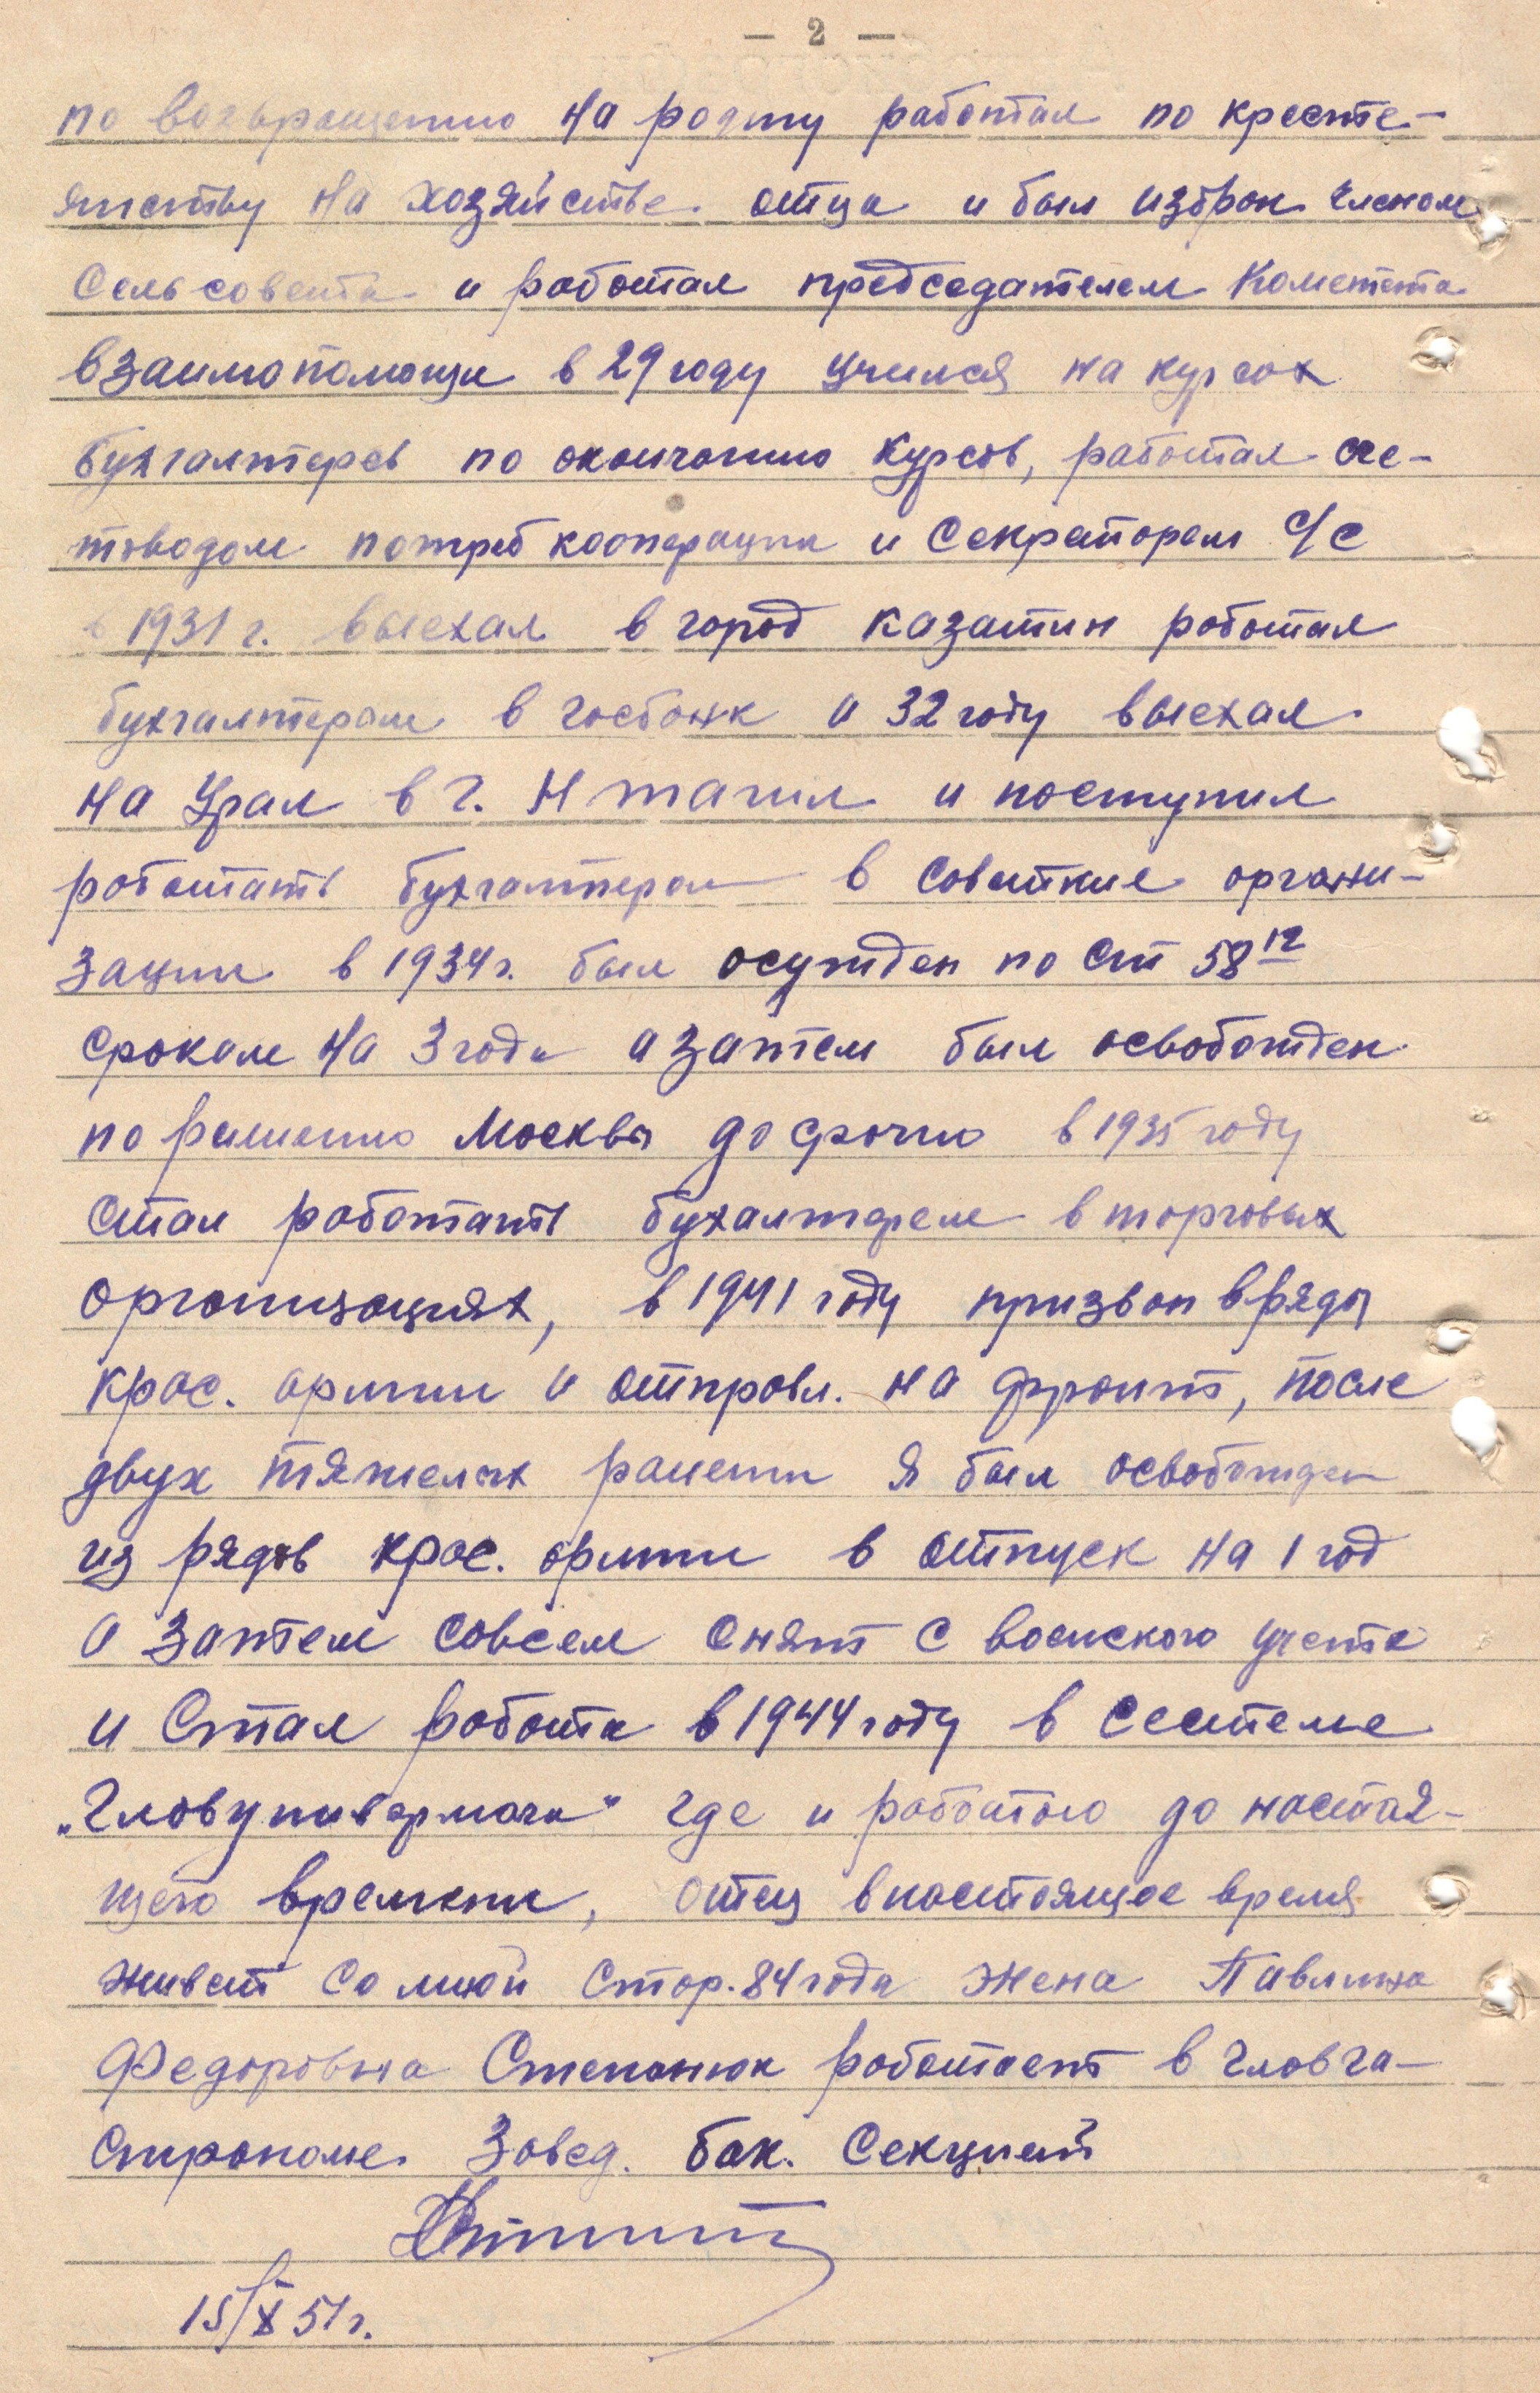 — 2 —
по возвращению на родину работал по кресте-
янству на хозяйстве отца и был избран членом
Сельсовета и работал председателем Кометета
взаимопомощи в 29 году учился на курсах
бухгалтеров по окончанию курсов, работал сче-
товодом потребкооперации и Секретарем С/С
в 1931 г. выехал в город Казатин работал
бухгалтером в госбанк а 32 году выехал
на Урал в г. Н тагил и поступил
работать бухгалтером в советские органи-
зации в 1934 г. был осужден по Ст 58 12
сроком на 3 года а затем был освобожден
по решению Москвы досрочно в 1935 году
стал работать бухалтером в торговых
организациях, в 1941 году призван в ряды
крас. армии и отправл. на фронт, после
двух тяжелых ранении я был освобожден
из рядов крас. армии в отпуск на 1 год
а затем совсем снят с воинского учета
и Стал работа в 1944 году в системе
„Главунивермага“ где и работаю до настоя-
щего времени, отец в настоящее время
живет со мной стар. 84 года жена Павлина
Федоровна Степанюк работает в главга-
строноме Завед. бак. Секцией
15/X 51 г.